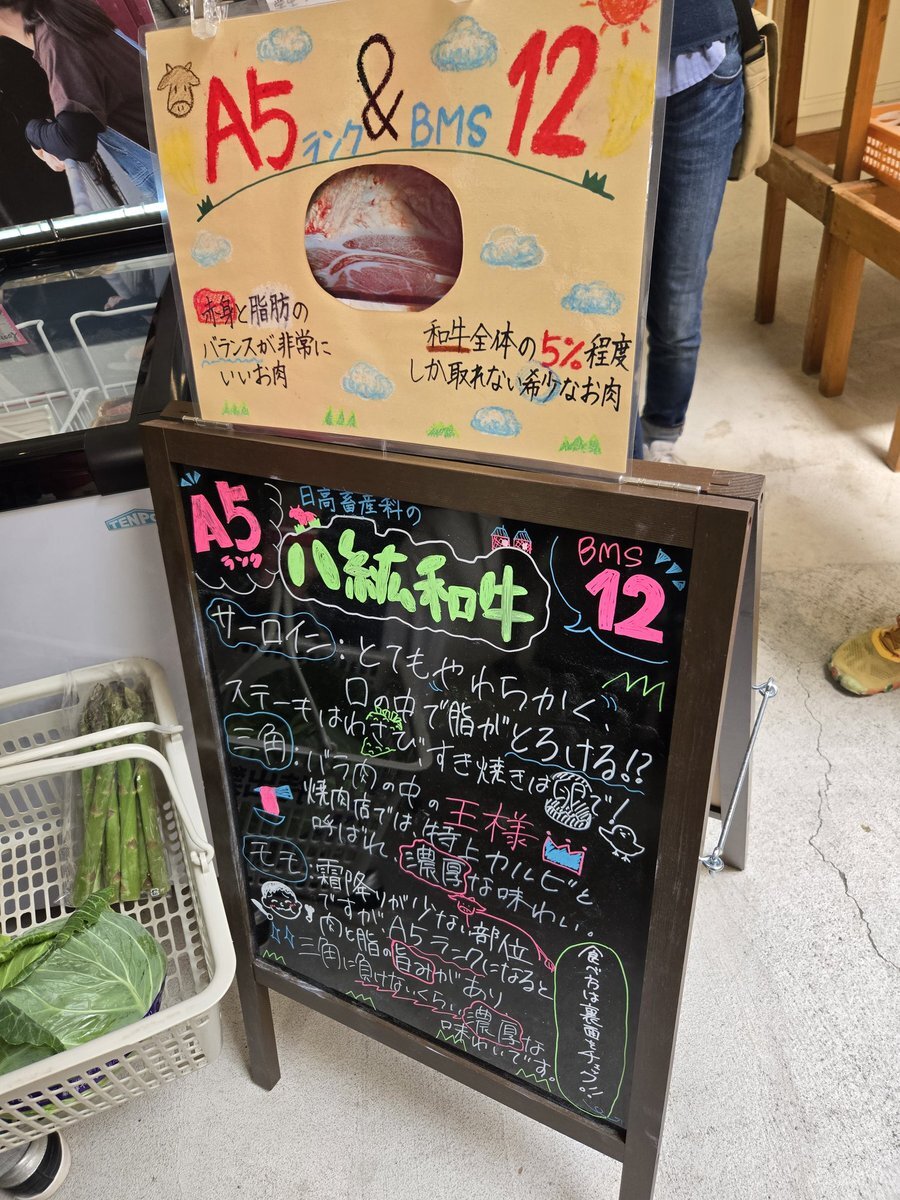 A5ランク & BMS 12
赤身と脂肪の
バランスが非常に
いいお肉
和牛全体の5%程度
しか取れない希少なお肉
TENPO
A5
ランク
日高畜産科の
八紘和牛
BMS
12
サーロイン:とてもやわらかく、
口の中で脂がとろける!?
ステーキはわさびすき焼きは卵で!
三角:バラ肉の中の王様
焼肉店では、特上カルビと
呼ばれ、濃厚な味わい。
モモ:霜降りが少ない部位
ですが、A5ランクになると
肉と脂の旨みがあり
三角に負けないくらい濃厚な
味わいです。
食べ方は裏面をチェック!!